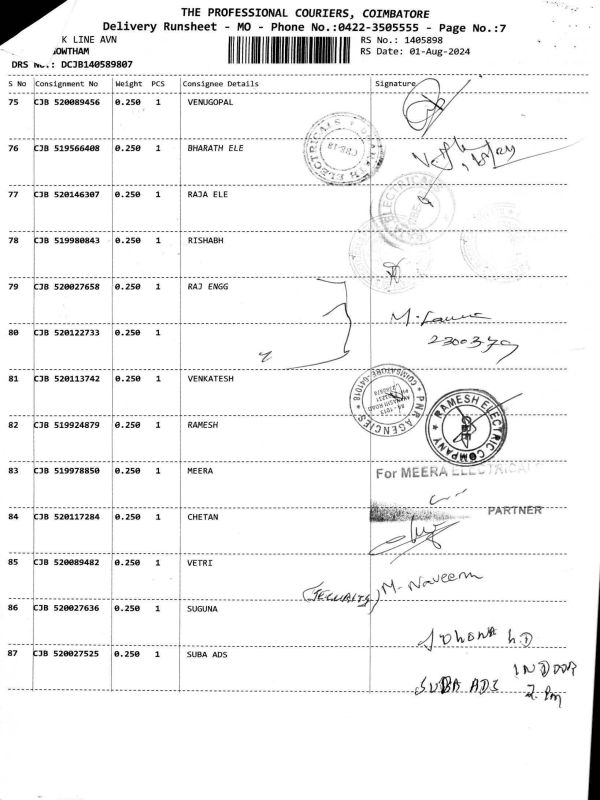 THE PROFESSIONAL COURIERS, COIMBATORE
Delivery Runsheet - MO - Phone No.:0422-3505555 - Page No.:7
K LINE AVN
RS No.: 1405898
OWTHAM
RS Date: 01-Aug-2024
DRS No.: DCJB140589807
S No Consignment No Weight PCS Consignee Details Signature
75 CJB 520089456 0.250 1 VENUGOPAL
76 CJB 519566408 0.250 1 BHARATH ELE
77 CJB 520146307 0.250 1 RAJA ELE
78 CJB 519980843 0.250 1 RISHABH
79 CJB 520027658 0.250 1 RAJ ENGG
80 CJB 520122733 0.250 1
81 CJB 520113742 0.250 1 VENKATESH
PNR AGENCIES
COIMBATORE-641018
82 CJB 519924879 0.250 1 RAMESH
RAMESH ELECTRIC COMPANY
83 CJB 519978850 0.250 1 MEERA
For MEERA ELECTRICAL
PARTNER
84 CJB 520117284 0.250 1 CHETAN
85 CJB 520089482 0.250 1 VETRI
(SECURITY) M. Naveen
86 CJB 520027636 0.250 1 SUGUNA
87 CJB 520027525 0.250 1 SUBA ADS
SUBA ADS